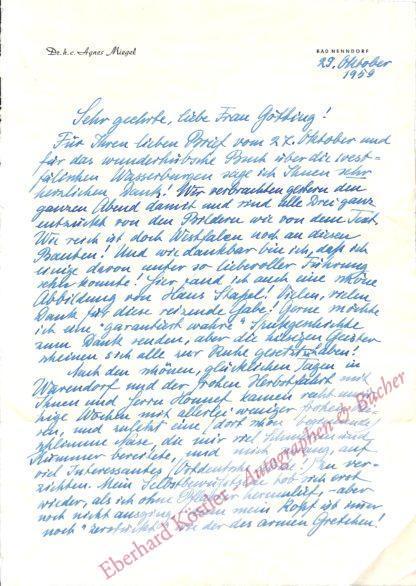 Dr. h. c. Agnes Miegel
BAD NENNDORF
29. Oktober
1959
Sehr geehrte, liebe Frau Götting!
Für Ihren lieben Brief vom 27. Oktober und
für das wunderhübsche Buch über die west=
fälischen Wasserburgen sage ich Ihnen sehr
herzlichen Dank! Wir verbrachten gestern den
ganzen Abend damit und sind alle Drei ganz
entzückt von den Bildern wie von dem Text.
Wie reich ist doch Westfalen noch an diesen
Bauten! Und wie dankbar bin ich, daß ich
einige davon unter so liebevoller Führung
sehn konnte! Hier fand ich auch eine schöne
Abbildung von Haus Stapel. Vielen, vielen
Dank für diese reizende Gabe! Gerne möchte
ich eine "garantiert wahre" Spukgeschichte
zum Dank senden, aber die hiesigen Geister
scheinen sich alle zur Ruhe gesetzt zu haben!
Nach den schönen, glücklichen Tagen in
Warendorf und der frohen Herbstfahrt mit
Ihnen und Herrn Honnef kamen recht
Wochen mit allerlei weniger
und zuletzt eine (dort schon
schlimme Nase, die mir viel Schmerzen und
Kummer bereitete, und mich zwang, auf
viel Interessantes zu ver=
zichten. Mein Selbstbewußtsein hob sich erst
wieder, als ich ohne herumlief, - aber
noch nicht ausging, mein Kopf ist immer
noch wie der des armen Gretchen!
Eberhard Köstler Autographen & Bücher